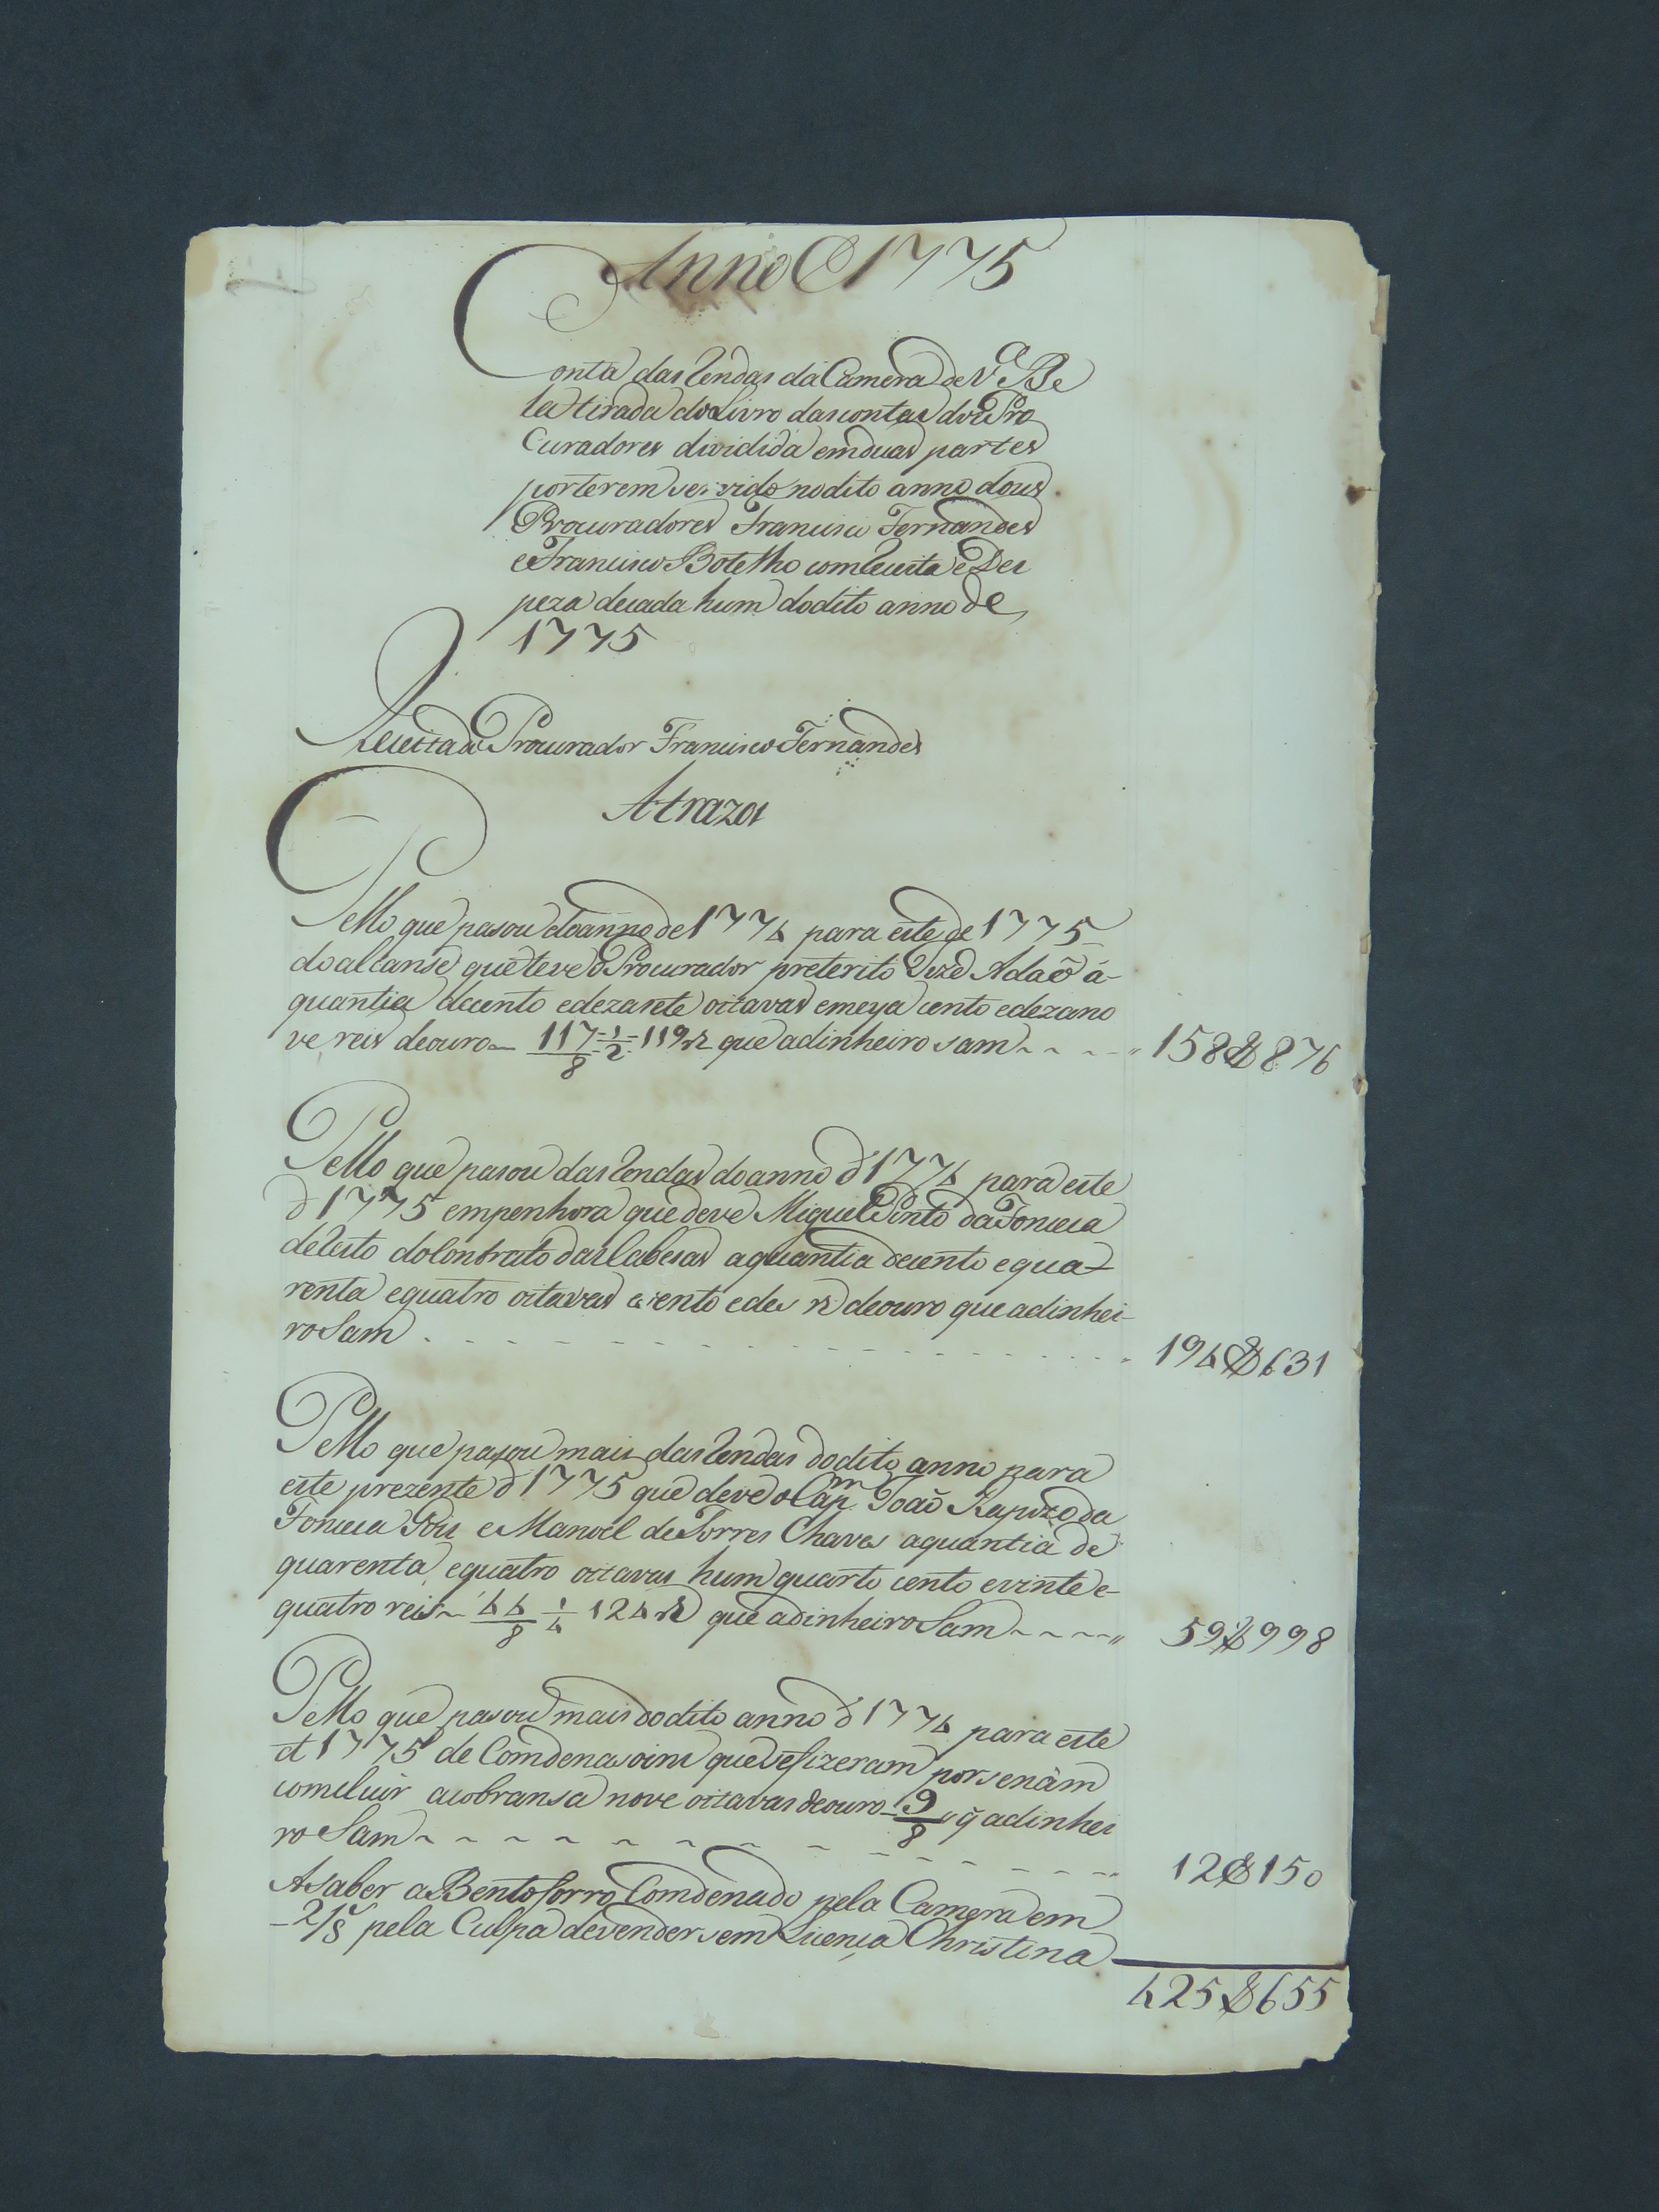 Anno D 1775
Conta das Rendas da Camera de V.ª Be
la tirada do Livro das contas dos Pro
Curadores dividida em duas partes
por terem servido no dito anno dous
Procuradores Francisco Fernandes
e Francisco Botelho com Receita e Des
peza de cada hum do dito anno de
1775
Receita do Procurador Francisco Fernandes
Atrazos
Pello que pasou do anno de 1774 para este de 1775
do alcanse que teve o Procurador preterito Joze Adaõ á
quantia de cento e dezasete oitavas e meya cento e dezano
ve reis de ouro 117/8 1/2 119 rs que a dinheiro sam 158$876
Pello que pasou das Rendas do anno d 1774 para este
d 1775 em penhora que deve Miguel Pinto da Fonceca
de Resto do Contrato das Cabesas a quantia de cento e qua
renta e quatro oitavas e cento e des rs de ouro que a dinhei-
ro Sam 194$631
Pello que pasou mais das Rendas do dito anno para
este prezente d 1775 que deve o Cap.m Joaõ Rapozo da
Fonceca Gois e Manoel de Torres Chaves a quantia de
quarenta e quatro oitavas hum quarto cento e vinte e
quatro reis 44/8 1/4 124 rs que a dinheiro Sam 59$998
Pello que pasou mais do dito anno d 1774 para este
d 1775 de Comdenasoins que se fizeram por se nam
comcluir a cobransa nove oitavas de ouro 9/8 q̃ a dinhei
ro Sam 12$150
A saber a Bento forro Comdenado pela Camera em
2/8 pela Culpa de vender sem Licença Christina
425$655